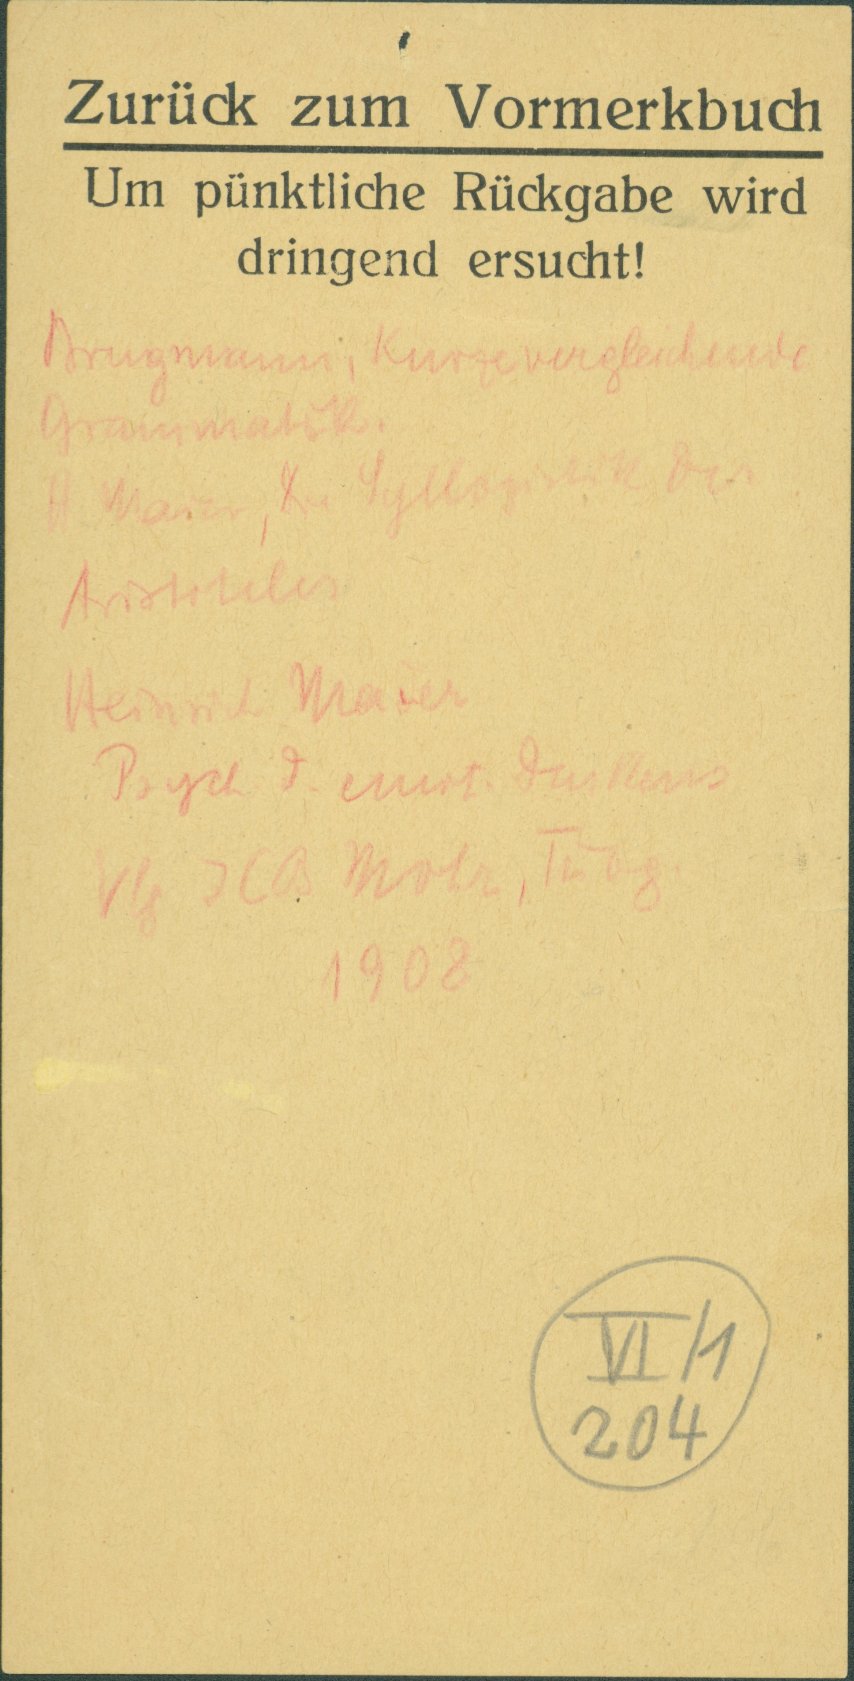 Zurück zum Vormerkbuch
Um pünktliche Rückgabe wird
dringend ersucht!
Brugmann, Kurze vergleichende
Grammatik.
H Maier, Die Syllogistik des
Aristoteles
Heinrich Maier
Psych d. emot. Denkens
Vlg JCB Mohr, Tübg.
1908
VI/1
204